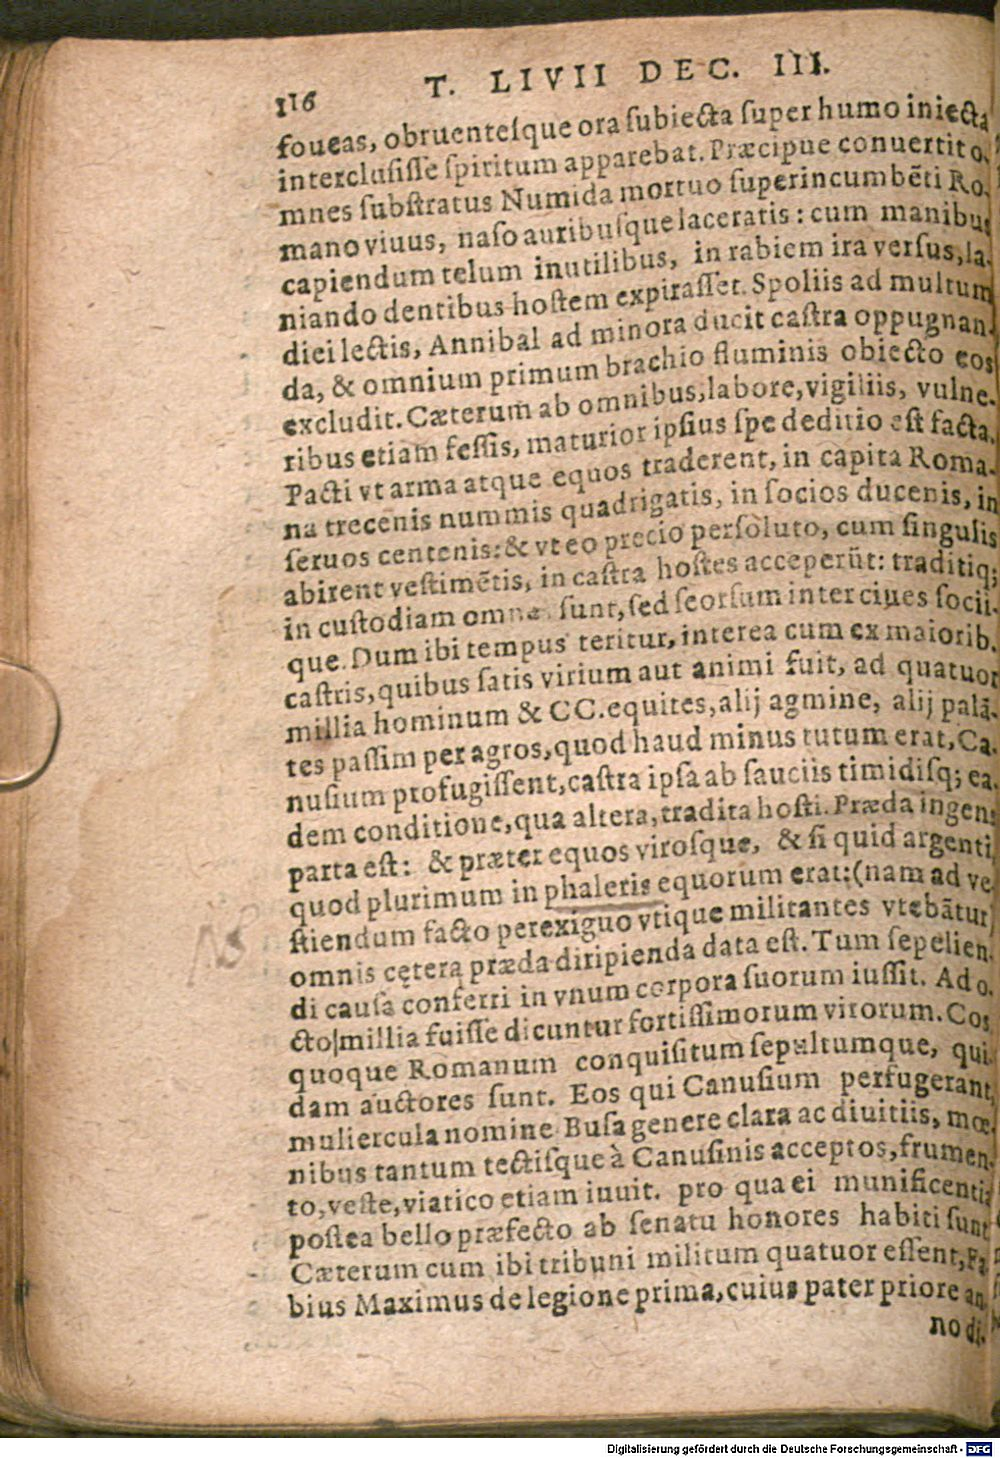 116 T. LIVII DEC. III.
foueas, obruentesque ora subiecta super humo iniecta
interclusisse spiritum apparebat. Præcipue conuertit o-
mnes substratus Numida mortuo superincumbẽti Ro-
mano viuus, naso auribusque laceratis: cum manibus
capiendum telum inutilibus, in rabiem ira versus, la-
niando dentibus hostem expirasset. Spoliis ad multum
diei lectis, Annibal ad minora ducit castra oppugnan-
da, & omnium primum brachio fluminis obiecto eos
excludit. Cæterum ab omnibus, labore, vigiliis, vulne-
ribus etiam fessis, maturior ipsius spe deditio est facta.
Pacti vt arma atque equos traderent, in capita Roma-
na trecenis nummis quadrigatis, in socios ducenis, in
seruos centenis: & vt eo precio persoluto, cum singulis
abirent vestimẽtis, in castra hostes acceperũt: traditiq;
in custodiam omnes sunt, sed seorsum inter ciues socii-
que. Dum ibi tempus teritur, interea cum ex maiorib.
castris, quibus satis virium aut animi fuit, ad quatuor
millia hominum & CC. equites, alij agmine, alij palã-
tes passim per agros, quod haud minus tutum erat, Ca-
nusium profugissent, castra ipsa ab sauciis timidisq; ea-
dem conditione, qua altera, tradita hosti. Præda ingens
parta est: & præter equos virosque, & si quid argenti
quod plurimum in phaleris equorum erat: (nam ad ve-
stiendum facto perexiguo vtique militantes vtebãtur)
omnis cętera præda diripienda data est. Tum sepelien-
di causa conferri in vnum corpora suorum iussit. Ad o-
cto millia fuisse dicuntur fortissimorum virorum. Cos
quoque Romanum conquisitum sepultumque, qui-
dam auctores sunt. Eos qui Canusium perfugerant,
muliercula nomine Busa genere clara ac diuitiis, mœ-
nibus tantum tectisque à Canusinis acceptos, frumen-
to, veste, viatico etiam iuuit. pro qua ei munificentia
postea bello præfecto ab senatu honores habiti sunt
Cæterum cum ibi tribuni militum quatuor essent, Fa-
bius Maximus de legione prima, cuius pater priore an-
no di-
NB
Digitalisierung gefördert durch die Deutsche Forschungsgemeinschaft - DFG